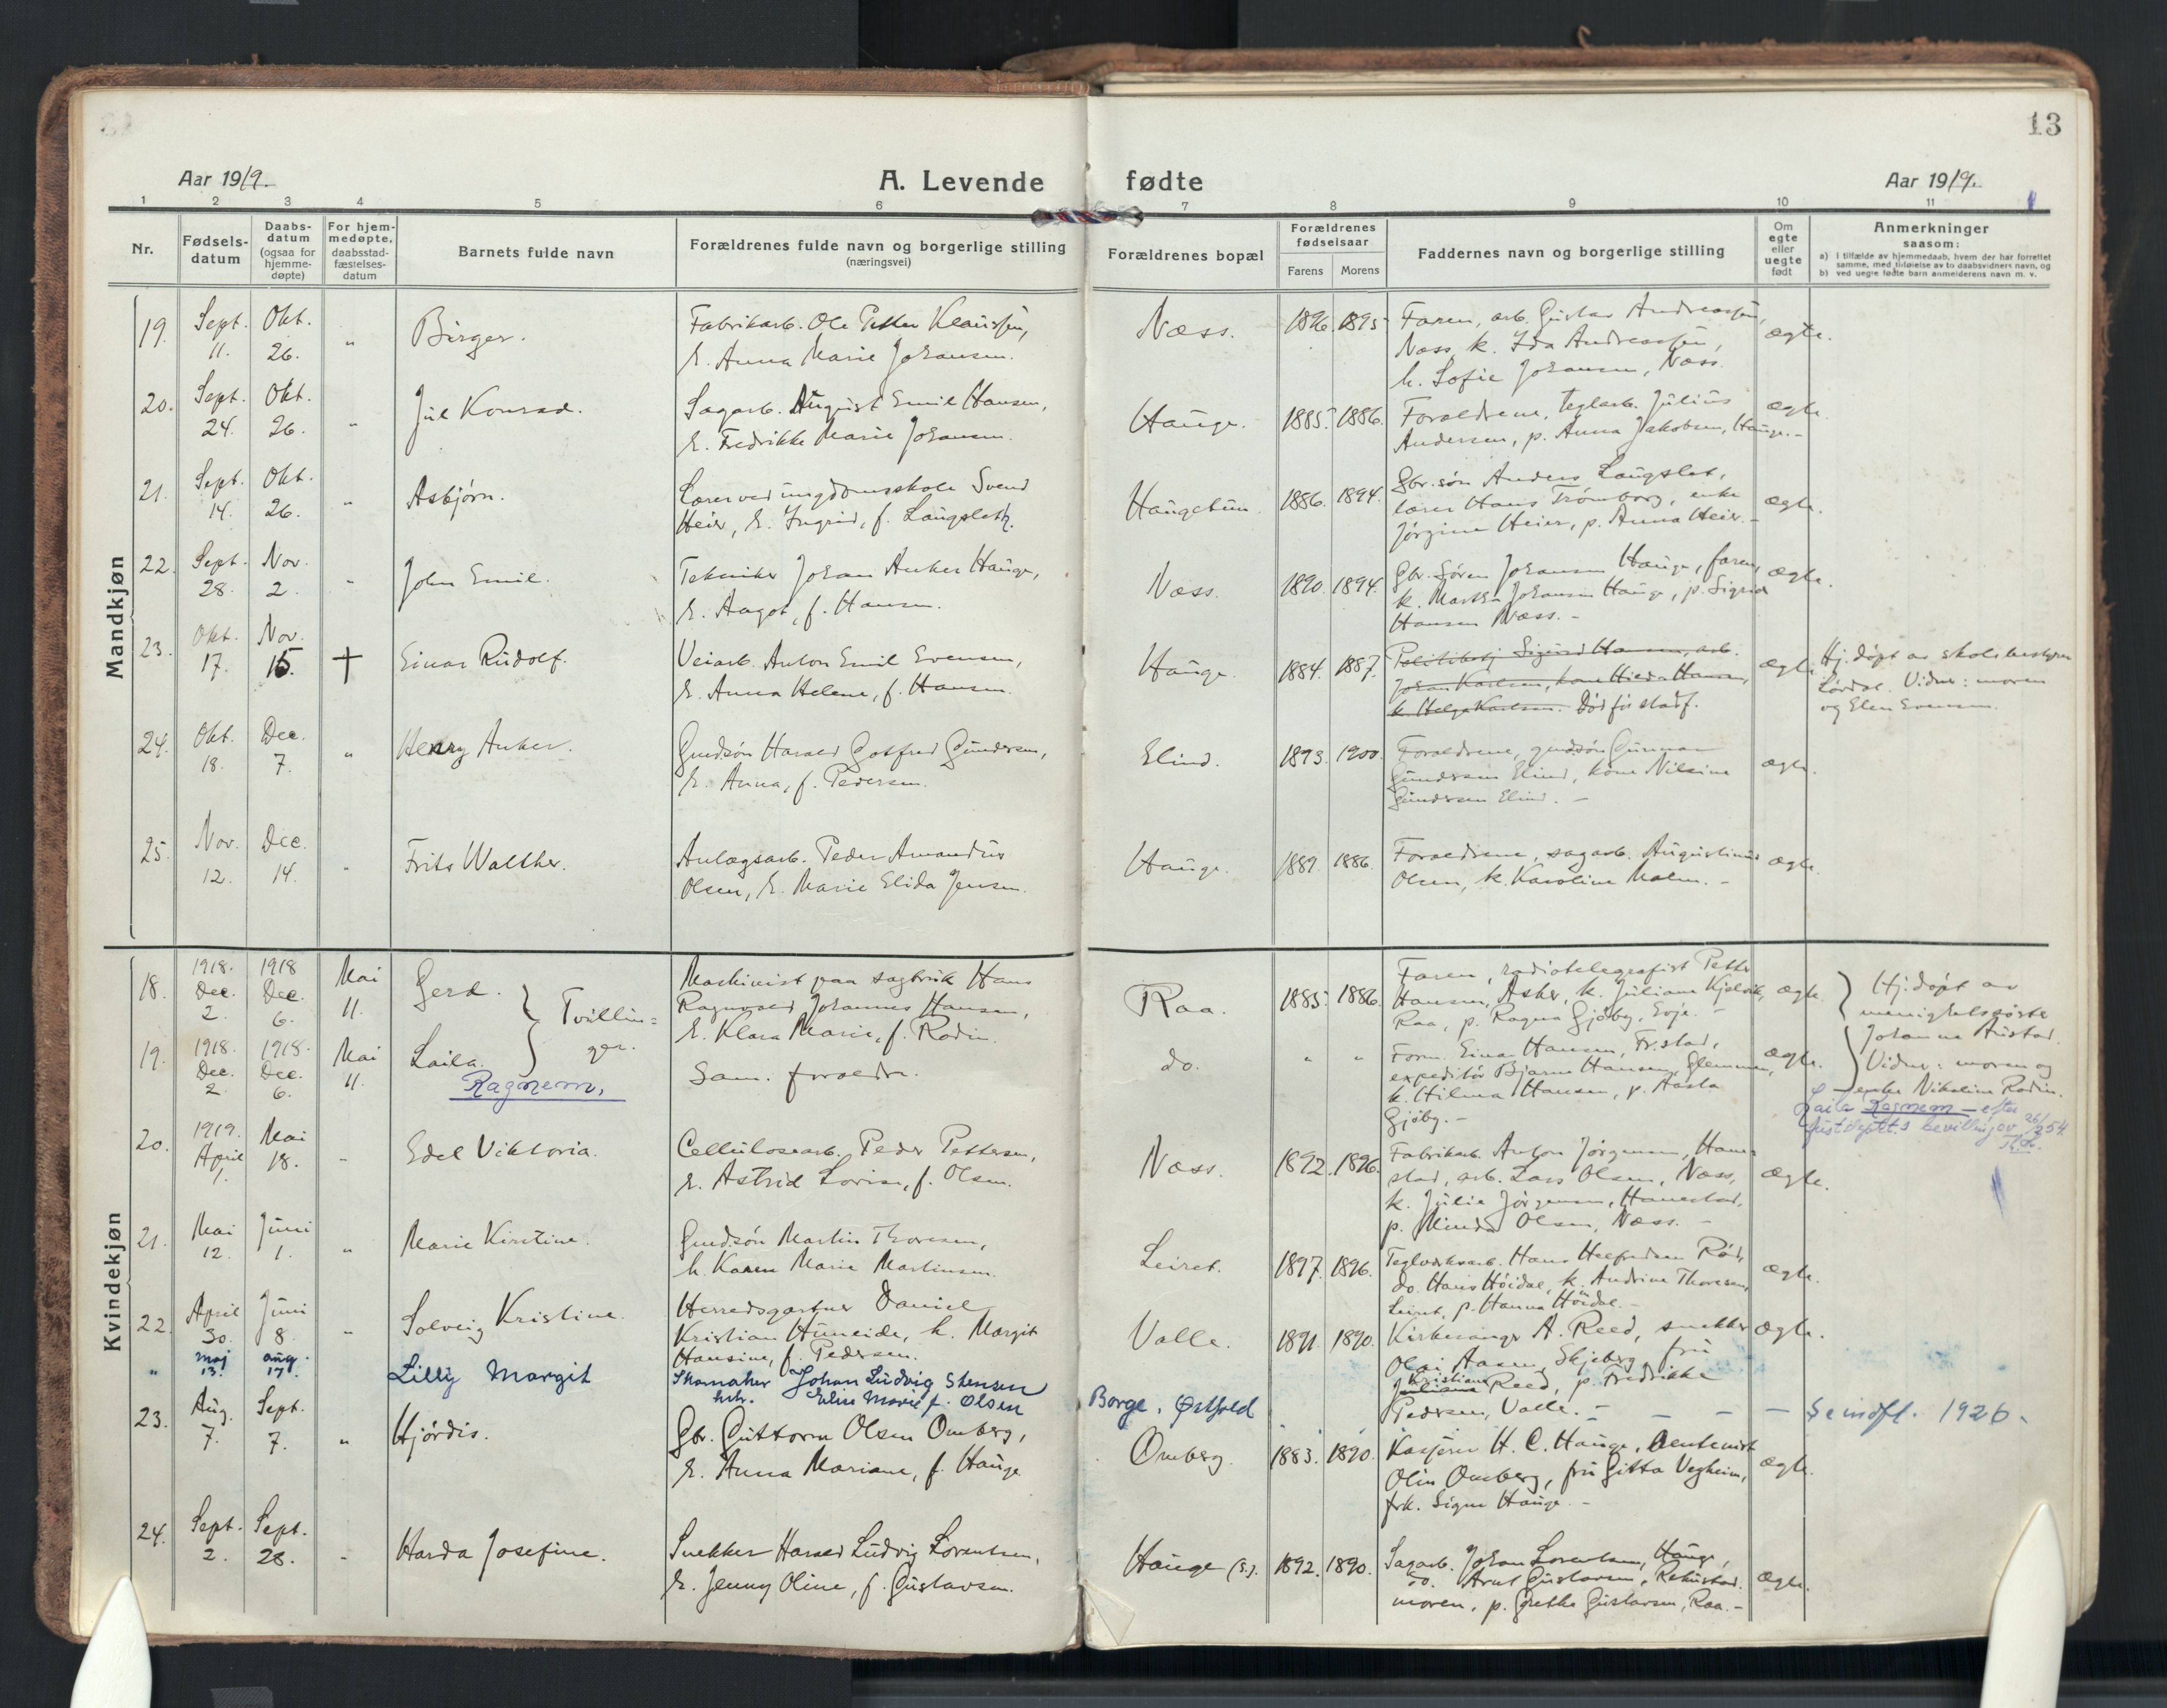 13
Aar 1919.
A. Levende fødte
Aar 1919.
1 2 3 4 5 6 7 8 9 10 11
Nr.
Fødsels-
datum
Daabs-
datum
(ogsaa for
hjemme-
døpte)
For hjem-
medøpte,
daabsstad-
fæstelses-
datum
Barnets fulde navn
Forældrenes fulde navn og borgerlige stilling
(næringsvei)
Forældrenes bopæl
Forældrenes
fødselsaar
Farens Morens
Faddernes navn og borgerlige stilling
Om
egte
eller
uegte
født
Anmerkninger
saasom:
a) i tilfælde av hjemmedaab, hvem der har forrettet
samme, med tilføielse av to daabsvidners navn, og
b) ved uegte fødte barn anmelderens navn m. v.
Mandkjøn
19. Sept. 11. Okt. 26. " Birger.
Fabrikarb. Ole Petter Klaussen,
h. Anna Marie Johansen.
Næss. 1896. 1895
Faren, arb. Gustav Andreassen,
Næss, k. Ida Andreassen,
h. Sofie Johansen, Næss.
ægte.
20. Sept. 24. Okt. 26. " Jul Konrad.
Sagarb. August Emil Hansen,
h. Fredrikke Marie Johansen.
Hauge. 1885. 1886.
Forældrene, teglarb. Julius
Andersen, p. Anna Jakobsen, Hauge. -
ægte.
21. Sept. 14. Okt. 26. " Asbjørn.
Lærer ved ungdomsskole Svend
Heier, h. Ingrid, f. Langsleth.
Haugetun. 1886. 1894.
Gbr. søn Anders Langslet,
lærer Hans Trømborg, enke
Jørgine Heier, p. Anna Heier. -
ægte.
22. Sept. 28. Nov. 2. " John Emil.
Tekniker Johan Anker Hauge,
h. Aagot, f. Hansen.
Næss. 1890. 1894.
Gbr. Søren Johansen Hauge, faren,
k. Marthe Johansen Hauge, p. Sigrid
Hansen Næss. -
ægte.
23. Okt. 17. Nov. 15. † Einar Rudolf.
Veiarb. Anton Emil Evensen,
h. Anna Helene, f. Hansen.
Hauge. 1884. 1887.
Sigurd Hansen, arb.
Johan Karlsen, kone Hilda Hansen,
k. Helga Karlsen. Død før stadf.
ægte.
Hj. døpt av skolebestyrer
Lørdal. Vidner: moren
og Elen Evensen.
24. Okt. 18. Dec. 7. " Henry Anker.
Grudsøn Harald Gotfred Gundersen,
h. Anna, f. Pedersen.
Elind. 1893. 1900.
Forældrene, grudsøn Gunnar
Gundersen Elind, kone Nilsine
Gundersen Elind. -
ægte.
25. Nov. 12. Dec. 14. " Frits Walther.
Anlægsarb. Peder Amandus
Olsen, h. Marie Elida Jensen.
Hauge. 1889. 1886.
Forældrene, sagarb. Augustinus
Olsen, k. Karoline Malm. -
ægte.
Kvindekjøn
18. 1918. Dec. 2. 1918 Dec. 6. Mai 11. Gerd. } Tvillin=
Maskinist paa sagbruk Hans
Ragnvald Johannes Hansen,
h. Klara Marie, f. Rodin.
Raa. 1885. 1886.
Faren, radiotelegrafist Petter
Hansen, Asker, k. Juliane Kjølvik,
Raa, p. Ragna Gjøby, Evje. -
ægte.
Hj. døpt av
menighetssøster
Johanne Austad.
Vidner: moren og
enke Nikoline Rodin.
19. 1918. Dec. 2 1918. Dec. 6. Mai 11. Laila. ger.
Ragnem.
Sam. forældre.
do. " "
Form. Einar Hansen, Fr.stad,
expeditør Bjarne Hansen, Glemmen,
k. Hilma Hansen, p. Aasta
Gjøby. -
ægte.
Laila Ragnem - efter
Justdeptts bevilling av 26/2 54.
20. 1919. April 1. Mai 18. " Edel Viktoria.
Cellulosearb. Peder Pettersen,
h. Astrid Lovise, f. Olsen.
Næss. 1892. 1896.
Fabrikarb. Anton Jørgensen, Hane-
stad, arb. Lars Olsen, Næss,
k. Julie Jørgensen, Hanestad,
p. Minda Olsen, Næss. -
ægte.
21. Mai 12. Juni 1. " Marie Kirstine.
Grudsøn Martin Thoresen,
h. Karen Marie Martinsen.
Leiret. 1897. 1896.
Teglverksarb. Hans Helgesen Rød,
do. Hans Høidal, k. Andrine Thoresen,
Leiret, p. Hanna Høidal. -
ægte.
22. April 30. Juni 8. " Solveig Kristine.
Herredsgartner Daniel
Kristian Huneide, h. Margit
Hansine, f. Pedersen.
Valle. 1891. 1890.
Kirkesanger A. Reed, snekker
Olai Aasen, Skjeberg, fru
Kristiane
Juliane Reed, p. Fredrikke
Pedersen, Valle. -
ægte.
" maj 13. aug. 17. Lilly Margit
Skomaker Johan Ludvig Stensen
hstr. Elise Marie f. Olsen
Borge, Østfold
- - - - Se indfl. 1926.
23. Aug. 7. Sept. 7. " Hjørdis.
Gbr. Guttorm Olsen Omberg,
h. Anna Mariane, f. Hauge
Omberg. 1883. 1890.
Kasserer H. C. Hauge, Agentenist
Olin Omberg, fru Gitta Vegheim,
frk. Signe Hauge. -
ægte.
24. Sept. 2. Sept. 28. " Harda Josefine.
Snekker Harald Ludvig Lorentsen,
h. Jenny Oline, f. Gustavsen.
Hauge (s). 1892. 1890.
Sagarb. Johan Lorentsen, Hauge,
do. Arnt Gustavsen, Rekustad.
moren, p. Grethe Gustavsen, Raa. -
ægte.